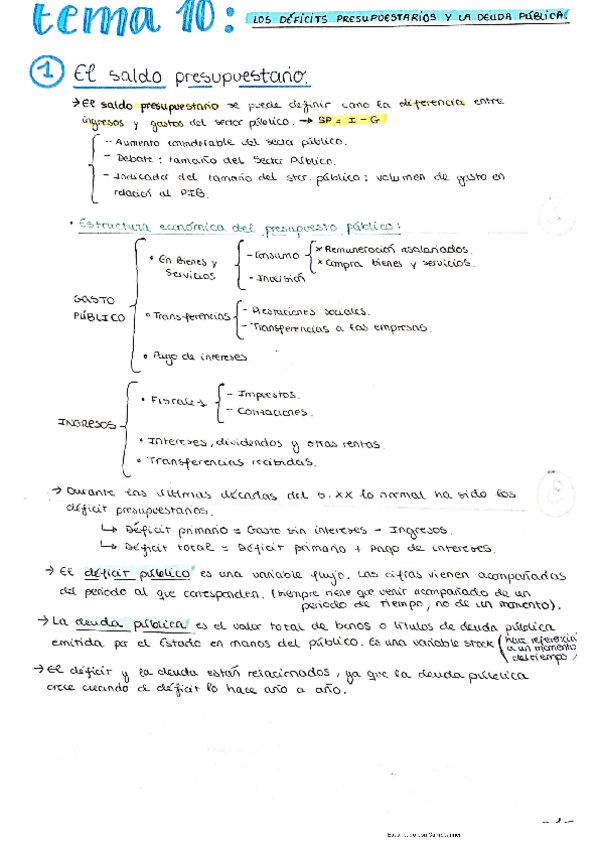 tema 10: LOS DÉFICITS PRESUPUESTARIOS Y LA DEUDA PÚBLICA.
1 El saldo presupuestario.
→ El saldo presupuestario se puede definir como la diferencia entre
ingresos y gastos del sector público. → SP = I - G
- Aumento considerable del sector público.
- Debate: tamaño del sector Público.
- Indicador del tamaño del stor. público: volumen de gasto en
relación al PIB.
• Estructura económica del presupuesto público:
GASTO PÚBLICO
• En Bienes y Servicios
- Consumo
x Remuneración asalariados.
x Compra bienes y servicios.
- Inversión
• Transferencias
- Prestaciones sociales.
- Transferencias a las empresas.
• Pago de intereses
INGRESOS
• Fiscales
- Impuestos.
- Cotizaciones.
• Intereses, dividendos y otras rentas.
• Transferencias recibidas.
→ Durante las últimas décadas del s. XX lo normal ha sido los
déficit presupuestarios.
↳ Déficit primario = Gasto sin intereses - Ingresos.
↳ Déficit total = Déficit primario + Pago de intereses.
→ El déficit público es una variable flujo. Las cifras vienen acompañadas
del periodo al que corresponden. (siempre tiene que venir acompañado de un
periodo de tiempo, no de un momento).
→ La deuda pública es el valor total de bonos o títulos de deuda pública
emitida por el Estado en manos del público. Es una variable stock (hace referencia
a un momento
del tiempo)
→ El déficit y la deuda están relacionados, ya que la deuda pública
crece cuando el déficit lo hace año a año.
- 1 -